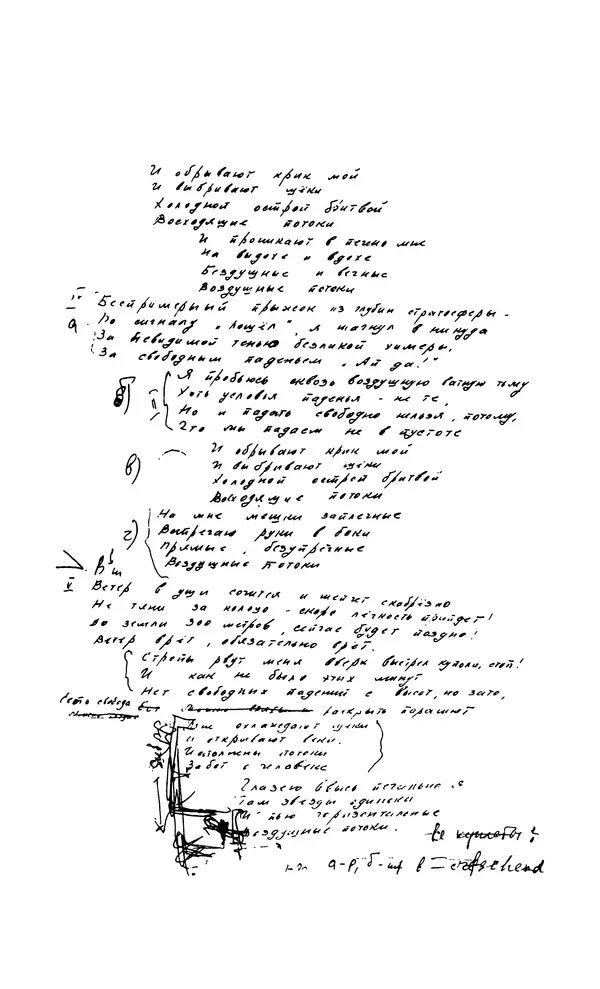 И обрывают крик мой
И выбривают щёки
Холодной острой бритвой
Восходящие потоки
И проникают в печень мне
На выдохе и вдохе
Бездушные и вечные
Воздушные потоки
IV Беспримерный прыжок из глубин стратосферы -
а. По сигналу „Пошёл", я шагнул в никуда
За невидимой тенью безликой химеры,
За свободным паденьем „Ай да!"
б) II Я пробьюсь сквозь воздушную ватную тьму
Хоть условья паденья - не те,
Но и падать свободно нельзя, потому,
Что мы падаем не в пустоте
в) И обрывают крик мой
И выбривают щёки
Холодной острой бритвой
Восходящие потоки
г) На мне мешки заплечные
Встречаю руки в боки
Прямые, безупречные
Воздушные потоки
V Ветер в уши сочится и шепчет скабрёзно
Не тяни за кольцо - скоро лёгкость придёт!
До земли 300 метров, сейчас будет поздно!
Ветер врёт, обязательно врёт.
Стропы рвут меня вверх выстрел купола, стоп!
И как не было этих минут
Нет свободных падений с высот, но зато,
Есть свобода раскрыть парашют
Мне охлаждают щёки
И открывают веки.
Исполнены потоки
Забот о человеке
Глазею ввысь печально я
Там звёзды одиноки
И пью горизонтальные
Воздушные потоки.